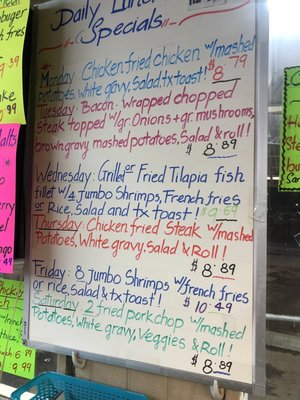 Daily Lunch
Specials
Monday: Chicken fried chicken w/mashed
potatoes, white gravy, salad, tx toast! $8.79
Tuesday: Bacon-Wrapped chopped
Steak topped w/gr. Onions + gr. mushrooms,
brown gravy mashed potatoes, Salad & roll!
$8.89
Wednesday: Grill or Fried Tilapia fish
fillet w/4 Jumbo Shrimps, French fries
or Rice, Salad and tx toast!
Thursday: Chicken fried Steak w/mashed
Potatoes, White gravy, Salad & Roll!
$8.89
Friday: 8 Jumbo Shrimps w/french fries
or rice, salad & tx toast! $10.49
Saturday: 2 fried pork chop w/mashed
Potatoes, White gravy, Veggies & Roll!
$8.89